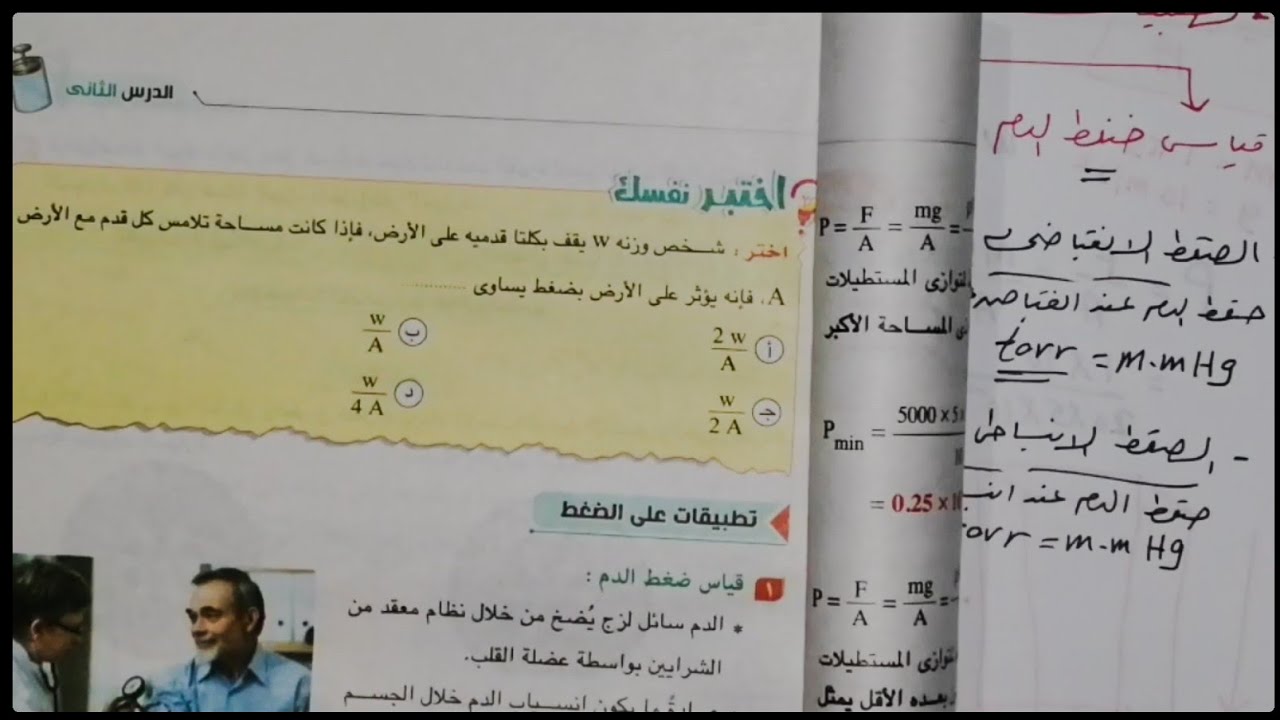 الدرس الثانى
اختبر نفسك
اختر : شخص وزنه w يقف بكلتا قدميه على الأرض، فإذا كانت مساحة تلامس كل قدم مع الأرض
A، فإنه يؤثر على الأرض بضغط يساوى ............
أ 2 w / A
ب w / A
جـ w / 2 A
د w / 4 A
تطبيقات على الضغط
١ قياس ضغط الدم :
* الدم سائل لزج يُضخ من خلال نظام معقد من
الشرايين بواسطة عضلة القلب.
ما يكون انسياب الدم خلال الجسم
P = F / A = mg / A =
توازى المستطيلات
المساحة الأكبر
P min = 5000 × 5
= 0.25 × 10
P = F / A = mg / A =
توازى المستطيلات
بعده الأقل يمثل
قياس ضغط الدم
الضغط الانقباضى
ضغط الدم عند
torr = m.m Hg
- الضغط الانبساطى
ضغط الدم عند
torr = m.m Hg